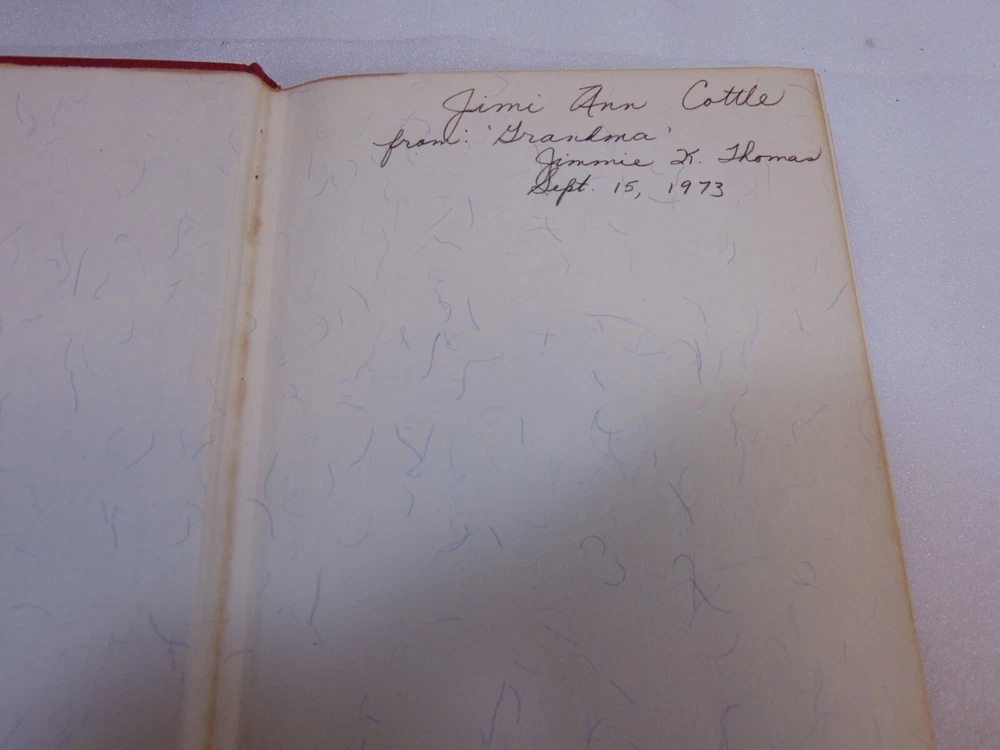 Jimi Ann Cottle
from: 'Grandma'
Jimmie K. Thomas
Sept. 15, 1973